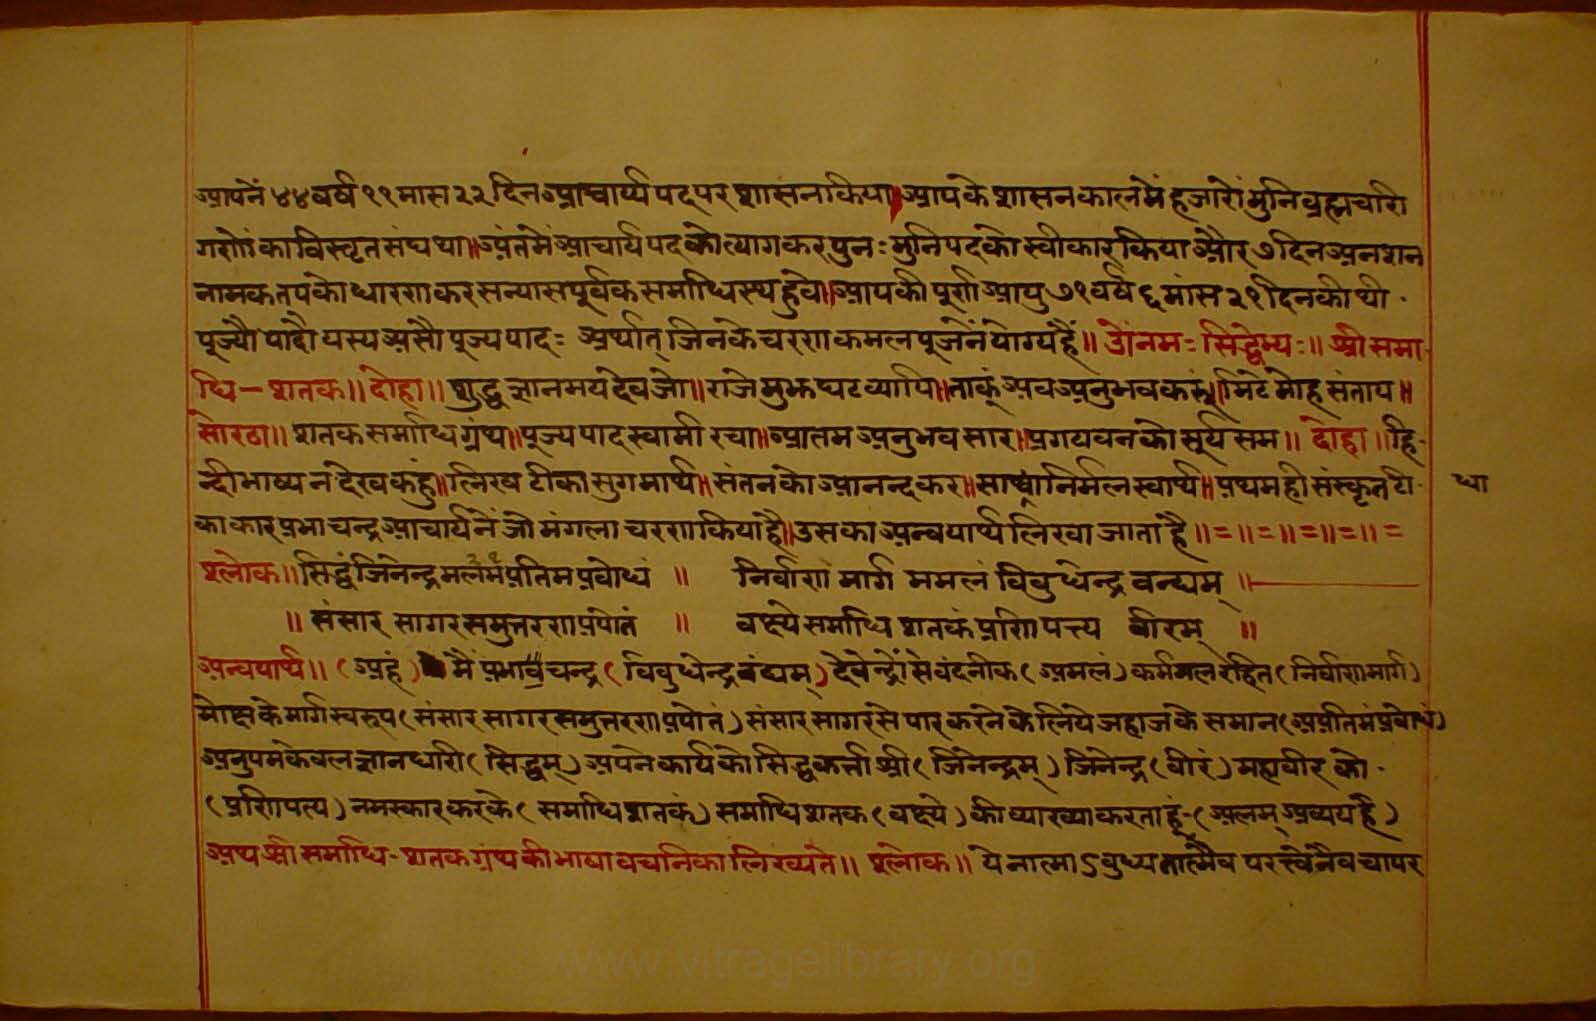 आपनें ४४ वर्ष ११ मास २२ दिन आचार्य्य पद पर शासन किया॥ आपके शासन काल में हजारों मुनि ब्रह्मचारी
गणों का विस्तृत संघ था॥ अंत में आचार्य पद को त्याग कर पुनः मुनि पद को स्वीकार किया और ७ दिन अनशन
नामक तप को धारण कर सन्यास पूर्वक समाधिस्थ हुवे॥ आपकी पूर्ण आयु ७१ वर्ष ६ मास २१ दिन की थी ·
पूज्यौ पादौ यस्य असौ पूज्य पादः अर्थात् जिनके चरण कमल पूजनें योग्य हैं॥ ओंनमः सिद्धेभ्यः॥ श्री समा-
धि - शतक॥ दोहा॥ शुद्ध ज्ञानमय देव जो॥ राजे मुझ घट व्यापि॥ ताकूं अब अनुभव करूं॥ मिटे मोह संताप॥
सोरठा॥ शतक समाधि ग्रंथ॥ पूज्यपाद स्वामी रचा॥ आतम अनुभव सार॥ प्रगटावन को सूर्य सम॥ दोहा॥ हि-
न्दी भाष्य न देख कहुं॥ लिख टीका सुगमार्थ॥ संतन को आनन्दकर॥ साधा निर्मल स्वार्थ॥ प्रथम ही संस्कृत टी- धा
काकार प्रभाचन्द्र आचार्य नें जो मंगलाचरण किया है॥ उसका अन्वयार्थ लिखा जाता है॥=॥=॥=॥=॥=
श्लोक॥ सिद्धं जिनेन्द्र मलम प्रतिम प्रबोधं ॥ निर्वाण मार्ग ममलं विबुधेन्द्र वन्द्यम् ॥
॥ संसार सागर समुत्तरण प्रपोतं ॥ वक्ष्ये समाधि शतकं प्रणिपत्त्य वीरम् ॥
अन्वयार्थ॥ (अहं) मैं प्रभाव चन्द्र (विबुधेन्द्र वंद्यम्) देवेन्द्रों से वंदनीक (अमलं) कर्म मल रहित (निर्वाण मार्ग)
मोक्ष के मार्ग स्वरूप (संसार सागर समुत्तरण प्रपोतं) संसार सागर से पार करने के लिये जहाज के समान (अप्रतिमं प्रबोधं)
अनुपम केवल ज्ञान धारी (सिद्धम्) अपने कार्य को सिद्ध कर्त्ता श्री (जिनेन्द्रम्) जिनेन्द्र (वीरं) महावीर को ·
(प्रणिपत्य) नमस्कार करके (समाधि शतकं) समाधि शतक (वक्ष्ये) की व्याख्या करता हूं - (अलम् अव्यय है)
अथ श्री समाधि - शतक ग्रंथ की भाषा वचनिका लिख्यते॥ श्लोक॥ येनात्माऽबुध्यतात्मैव परत्त्वेनैव चापर
www.vitragelibrary.org